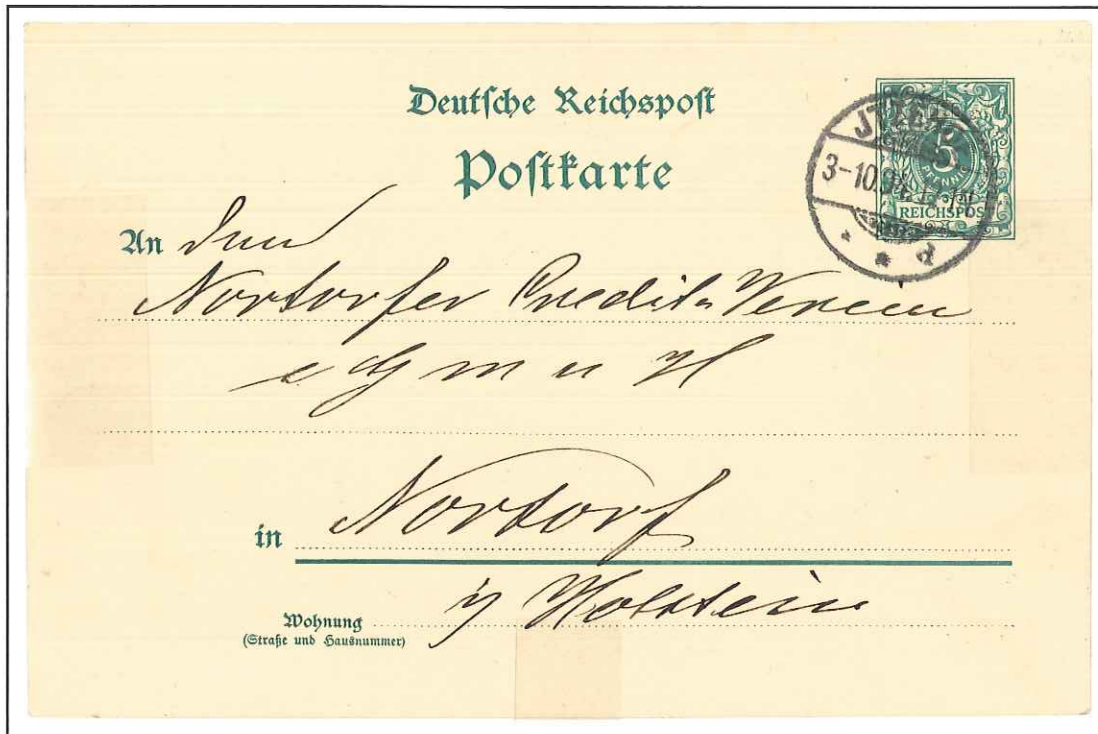 Deutsche Reichspost
Postkarte
5
PFENNIG
REICHSPOST
3-10.94
d
An den
Nortorfer Credit-Verein
e G m u H
in Nortorf
i/ Holstein
Wohnung
(Straße und Hausnummer)